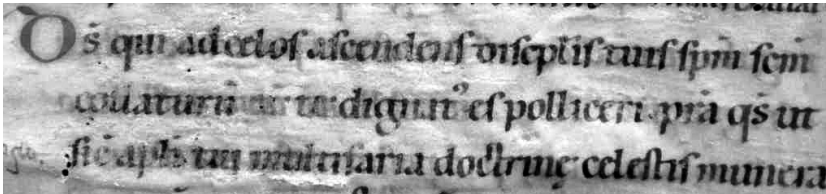 Ds̄ qui ad celos ascendens discipl̄is tuis sp̄m sc̄m
collaturū dignatꝰ es polliceri. pr̄a qs̄ ut
sic̄ apl̄i tui multifaria doctrinę celestis munera